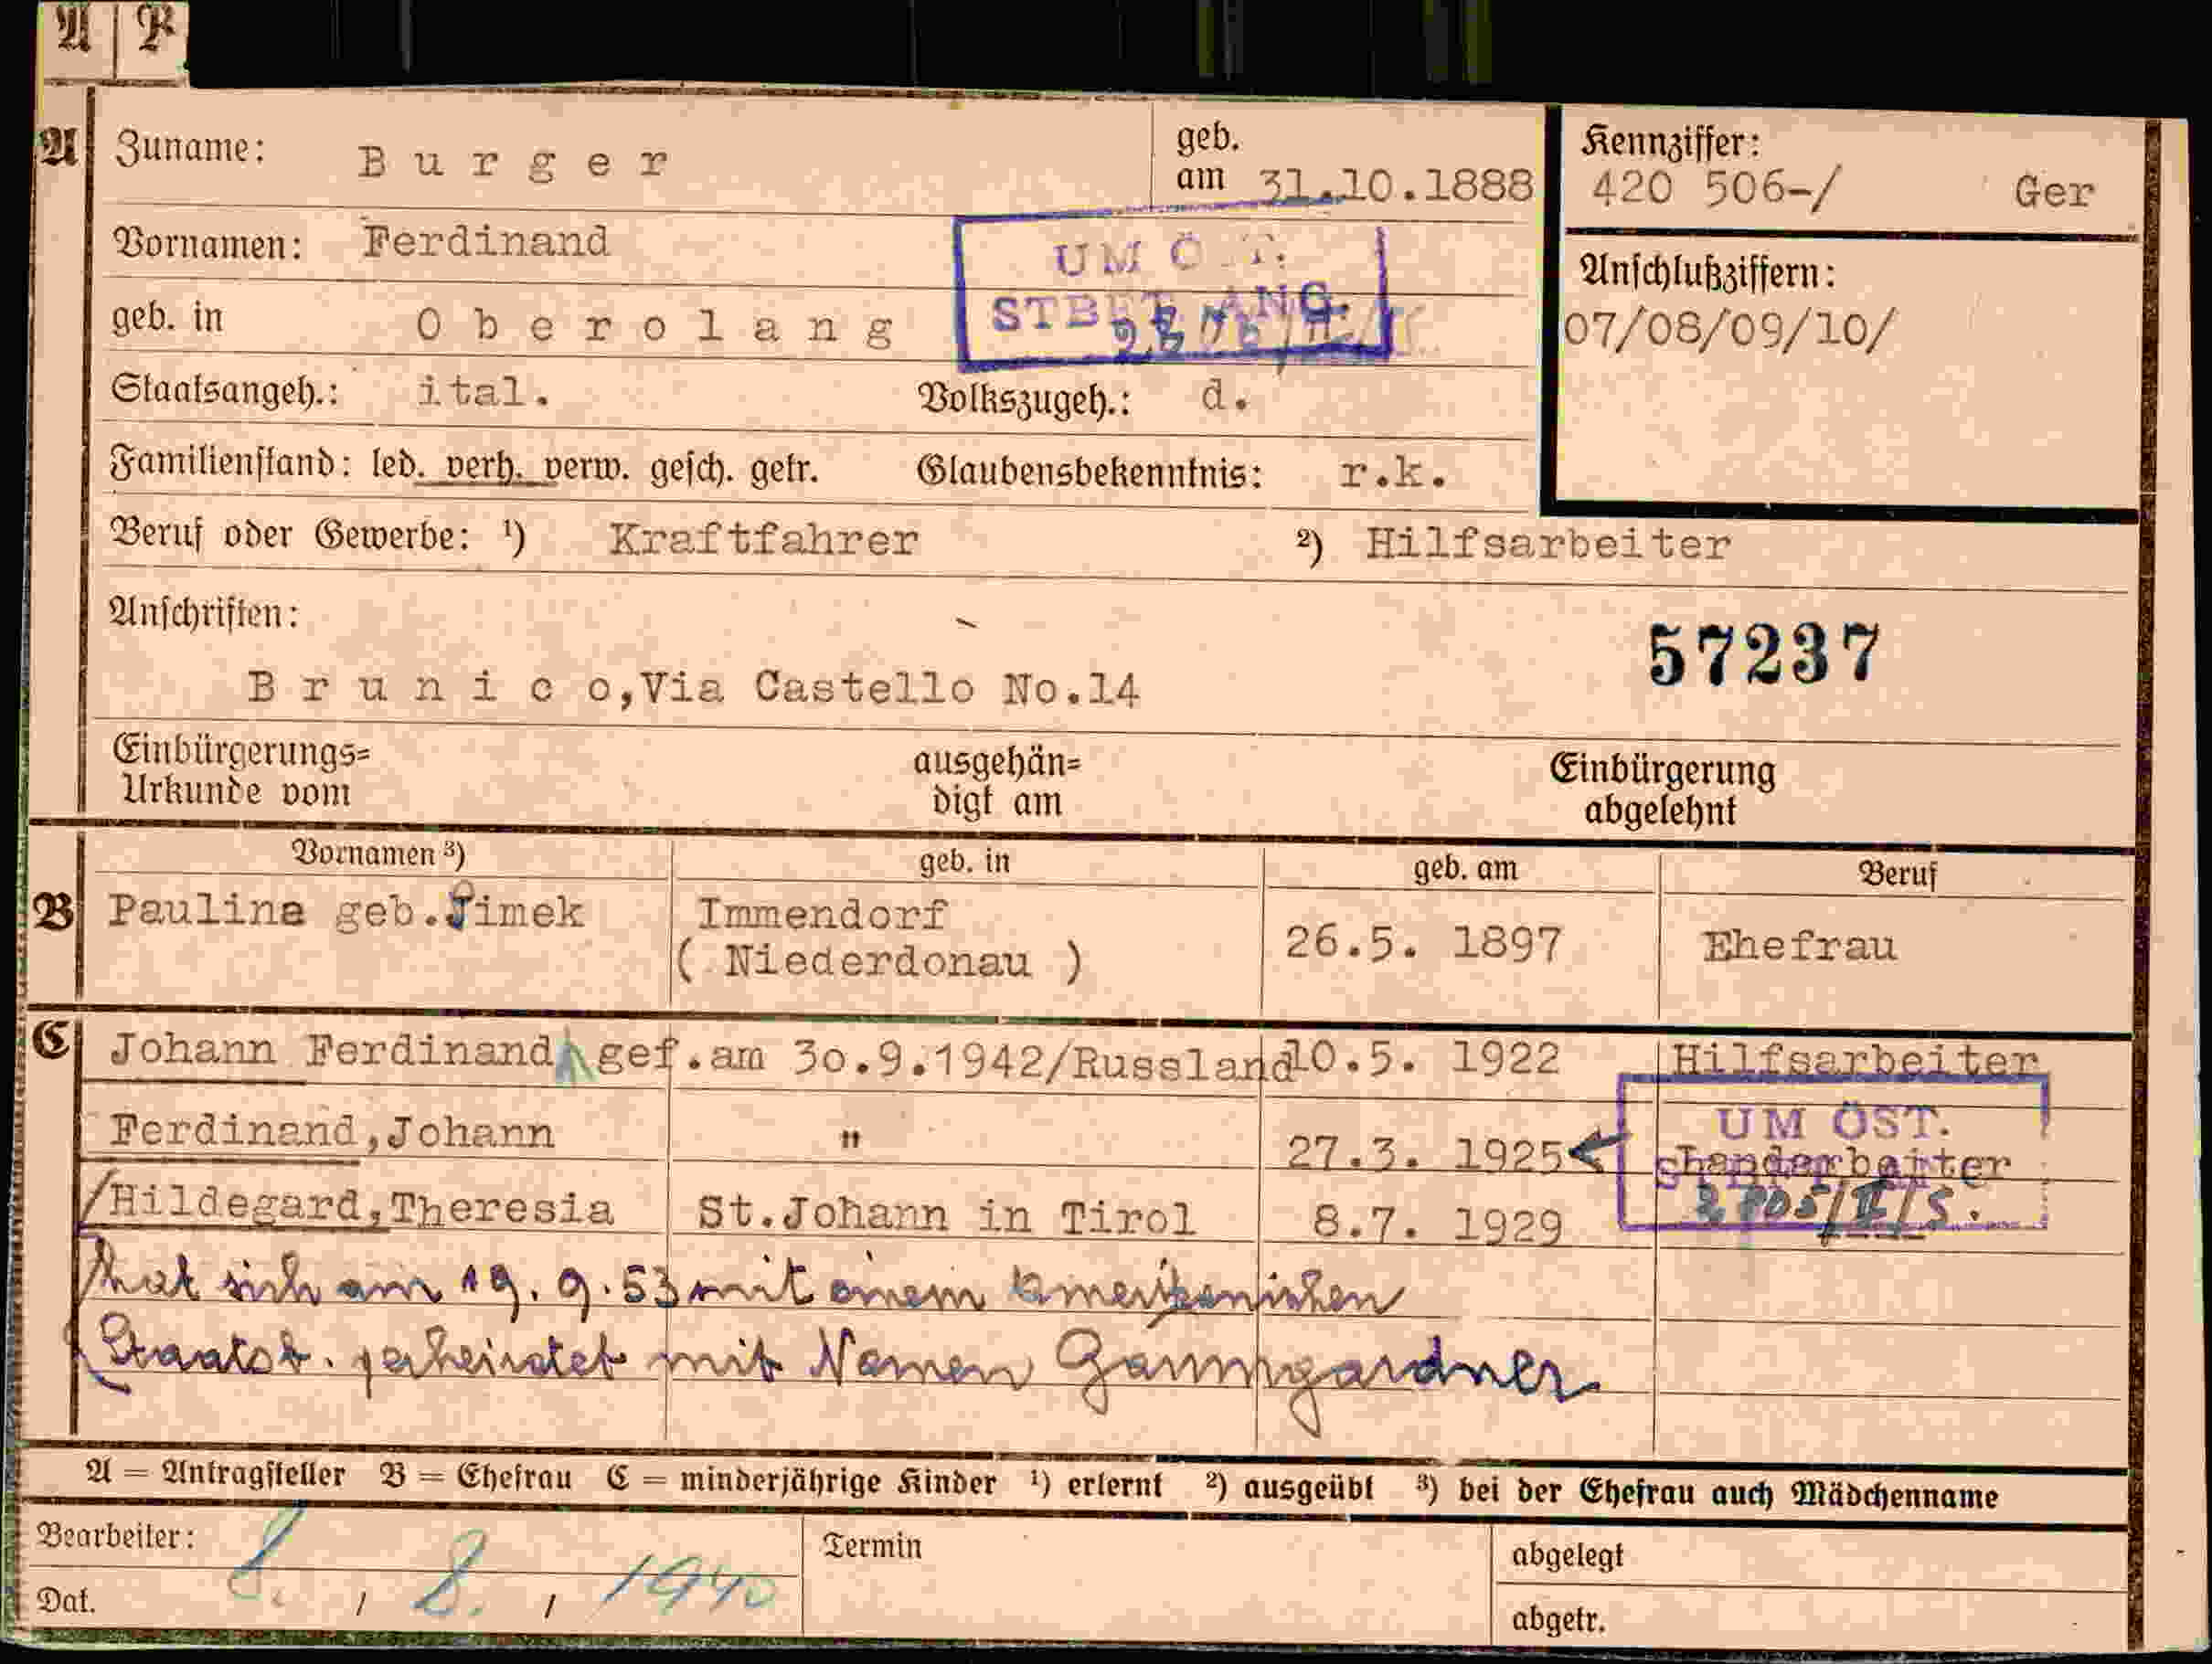 A P
A Zuname: Burger geb. am 31.10.1888
Kennziffer: 420 506-/ Ger
Vornamen: Ferdinand
UM ÖST.
STBET. ANG.
Anschlußziffern:
07/08/09/10/
geb. in Oberolang
Staatsangeh.: ital. Volkszugeh.: d.
Familienstand: led. verh. verw. gesch. getr. Glaubensbekenntnis: r.k.
Beruf oder Gewerbe: ¹) Kraftfahrer ²) Hilfsarbeiter
Anschriften:
57237
Brunico,Via Castello No.14
Einbürgerungs= Urkunde vom ausgehän= digt am Einbürgerung abgelehnt
Vornamen ³) geb. in geb. am Beruf
B Pauline geb.Simek Immendorf 26.5. 1897 Ehefrau
( Niederdonau )
C Johann Ferdinand gef.am 30.9.1942/Russland 10.5. 1922 Hilfsarbeiter
UM ÖST.
Ferdinand,Johann " 27.3. 1925
2805/II/S.
/Hildegard,Theresia St.Johann in Tirol 8.7. 1929
hat sich am 19.9.53 mit einem amerikanischen
Staatsb. verheiratet mit Namen
A = Antragsteller B = Ehefrau C = minderjährige Kinder ¹) erlernt ²) ausgeübt ³) bei der Ehefrau auch Mädchenname
Bearbeiter: Termin abgelegt
Dat. 8. / 8. / 1940 abgetr.